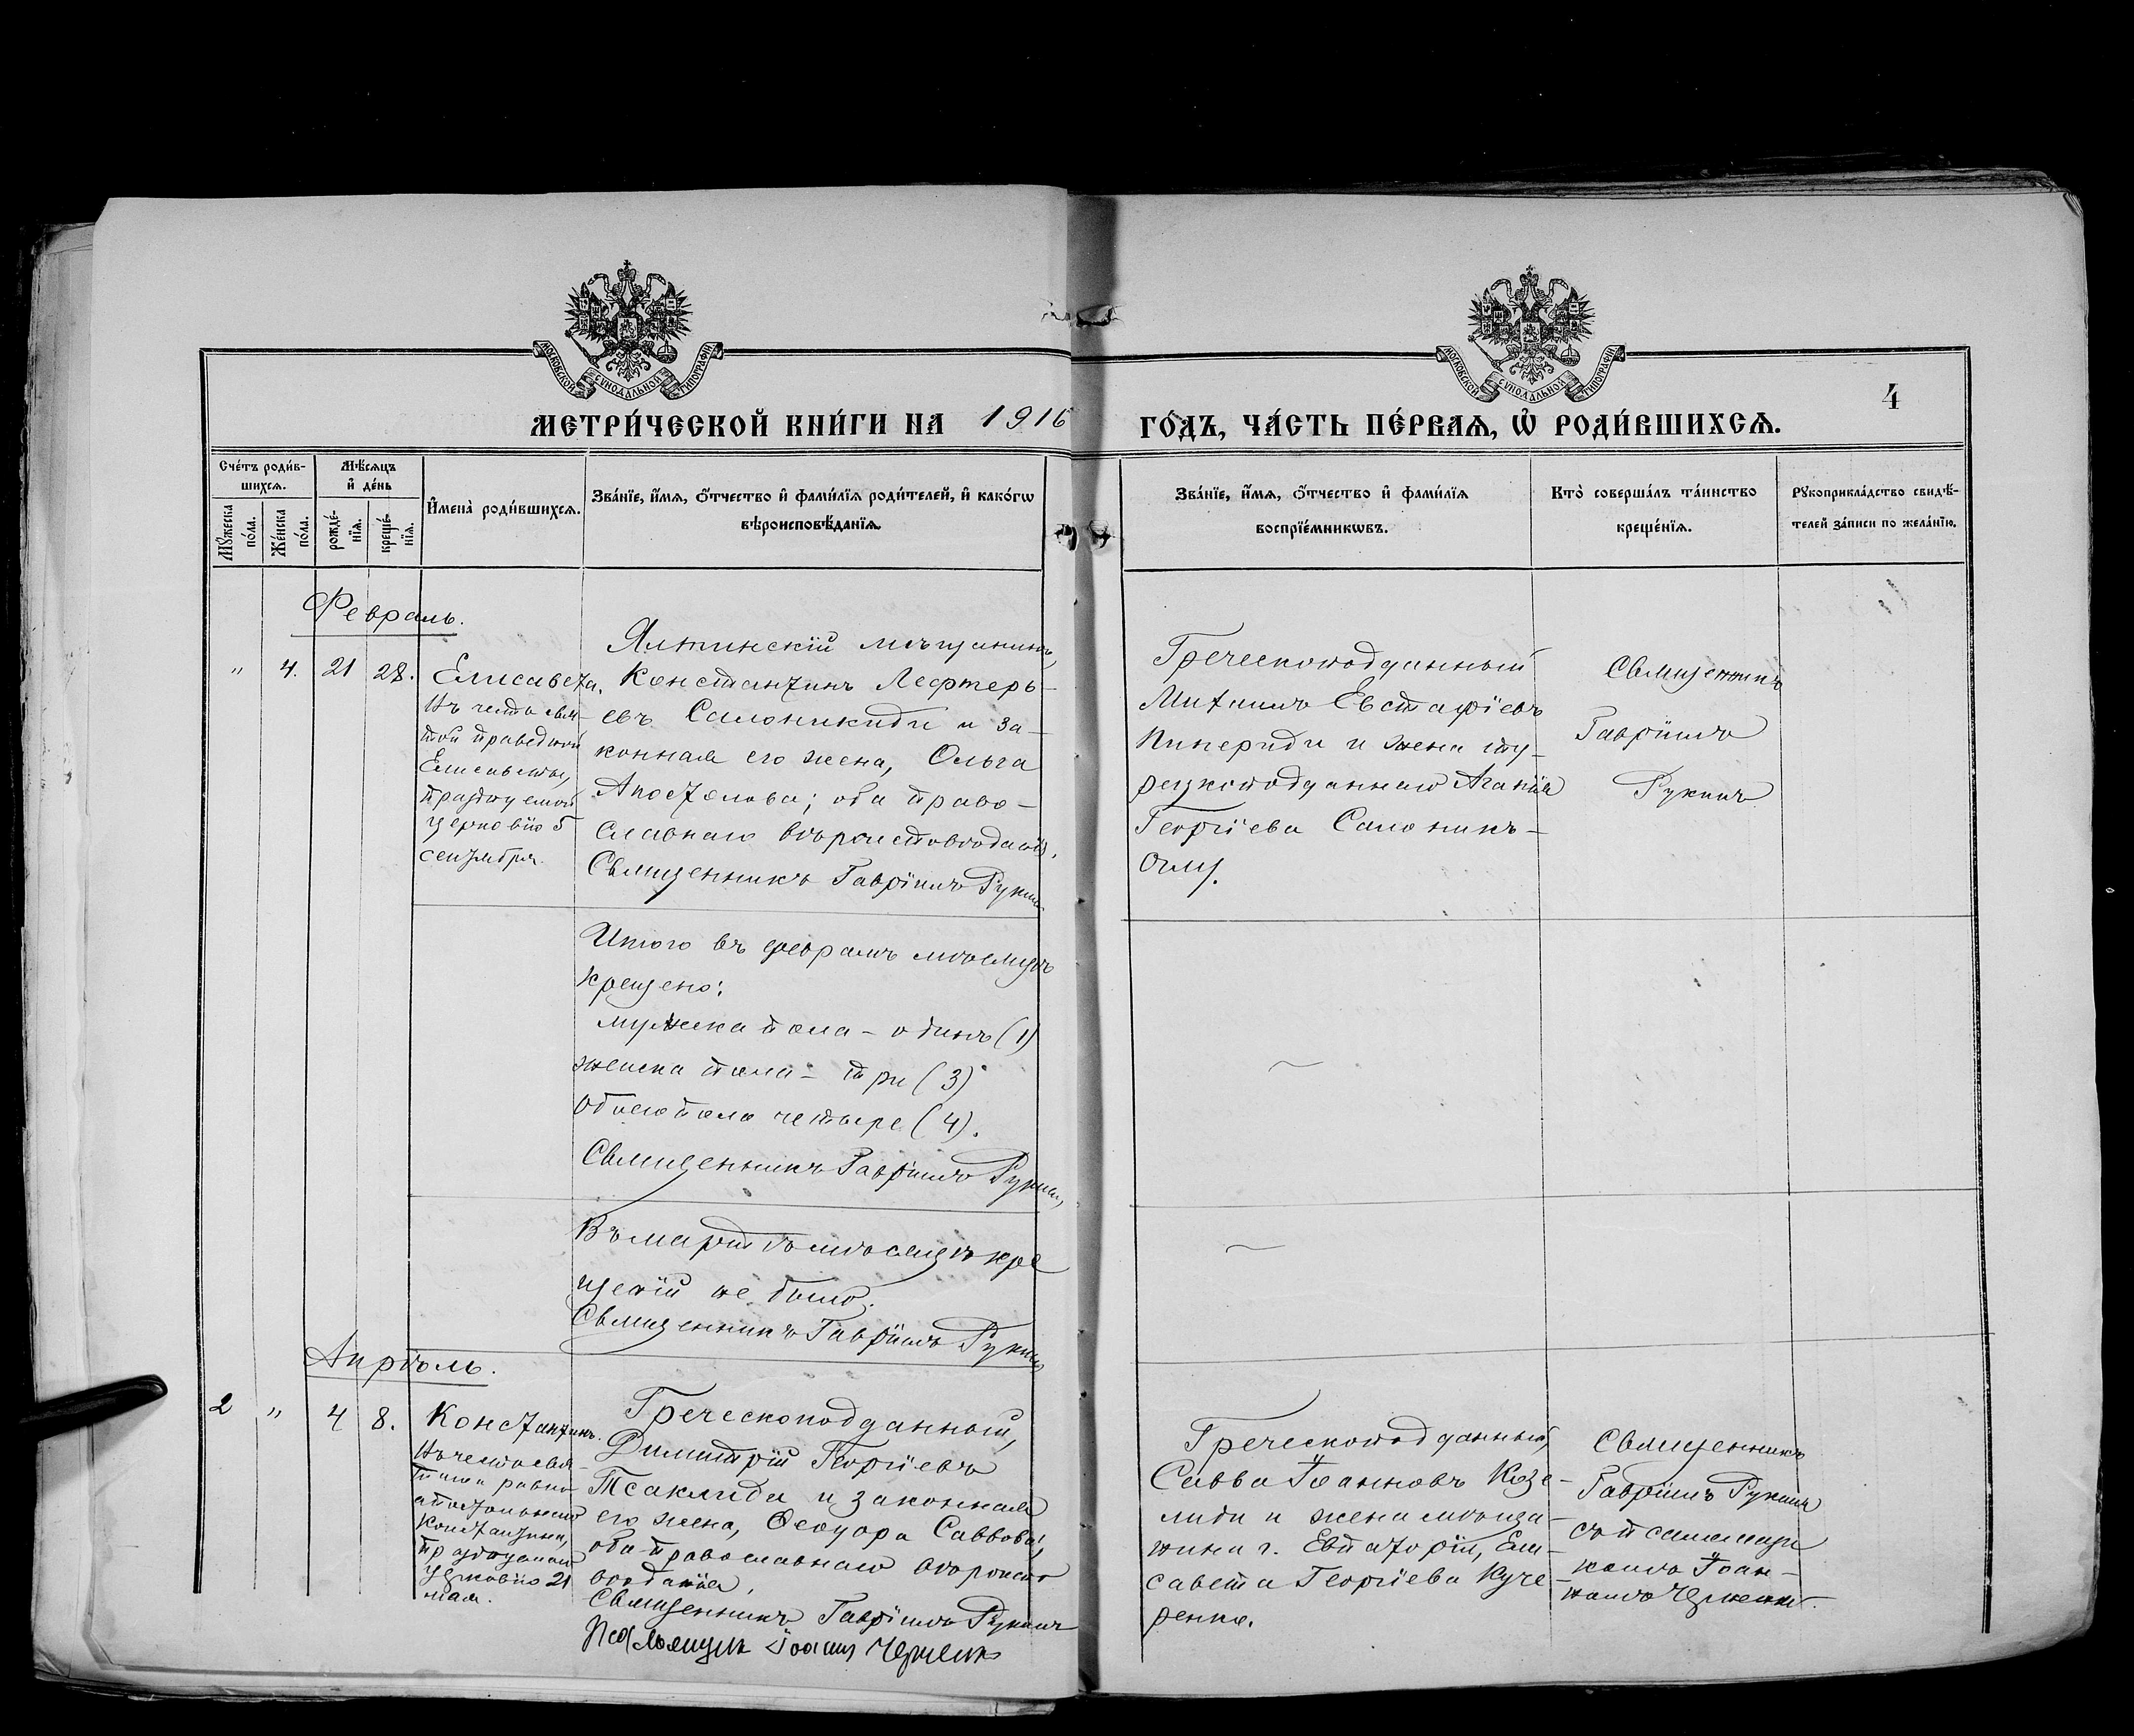 МОСКОВСКОЙ СѴНОДАЛЬНОЙ ТИПОГРАФІИ
МОСКОВСКОЙ СѴНОДАЛЬНОЙ ТИПОГРАФІИ
4
МЕТРИ́ЧЕСКОЙ КНИ́ГИ НА 1916 ГО́ДЪ, ЧА́СТЬ ПЕ́РВАѦ, Ѡ҆ РОДИ́ВШИХСѦ.
Сче́тъ роди́в-
шихсѧ.
Мѣ́сѧцъ
и҆ де́нь
Мꙋ́жеска по́ла.
Же́нска по́ла.
рожде́-
нїѧ.
креще́-
нїѧ.
И҆мена̀ роди́вшихсѧ.
Зва́нїе, и҆́мѧ, ѻ҆́тчество и҆ фами́лїѧ роди́телей, и҆ како́гѡ
вѣроисповѣ́данїѧ.
Зва́нїе, и҆́мѧ, ѻ҆́тчество и҆ фами́лїѧ
воспрїе́мникѡвъ.
Кто̀ соверша́лъ та́инство
креще́нїѧ.
Рꙋкоприкла́дство свидѣ́-
телей за́писи по жела́нїю.
Февраль.
" 4. 21 28.
Елисавета.
Въ честь свя-
той праведной
Елисаветы,
празднуемой
церковію 5
сентября.
Ялтинскій мѣщанинъ,
Константинъ Лефтерь-
евъ Салоникиди и за-
конная его жена, Ольга
Апостолова; оба право-
славнаго вѣроисповѣданія.
Священникъ Гавріилъ Рукинъ
Греческоподданный
Михаилъ Евстафіевъ
Пипериди и жена ту-
рецкоподданнаго Агапія
Георгіева Салоникъ-
Оглу.
Священникъ
Гавріилъ
Рукинъ
Итого въ февралѣ мѣсяцѣ
крещено:
мужска пола – одинъ (1)
женска пола – три (3)
обоего пола четыре (4).
Священникъ Гавріилъ Рукинъ
Въ мартѣ мѣсяцѣ кре
щеній не было.
Священникъ Гавріилъ Рукинъ
Апрѣль.
2 " 4 8.
Константинъ.
Въ честь свя-
таго равно-
апостольнаго
Константина,
празднуемаго
церковію 21
мая.
Греческоподданный,
Димитрій Георгіевъ
Тсаклиди и законная
его жена, Ѳеодора Саввова;
оба православнаго вѣроиспо
вѣданія.
Священникъ Гавріилъ Рукинъ
Псаломщикъ Іоаннъ
Греческоподданный,
Савва Іоанновъ Козе-
лиди и жена мѣща-
нина г. Евпаторіи, Ели-
савета Георгіева Куче-
ренко.
Священникъ
Гавріилъ Рукинъ
съ псаломщи
комъ Іоан-
номъ